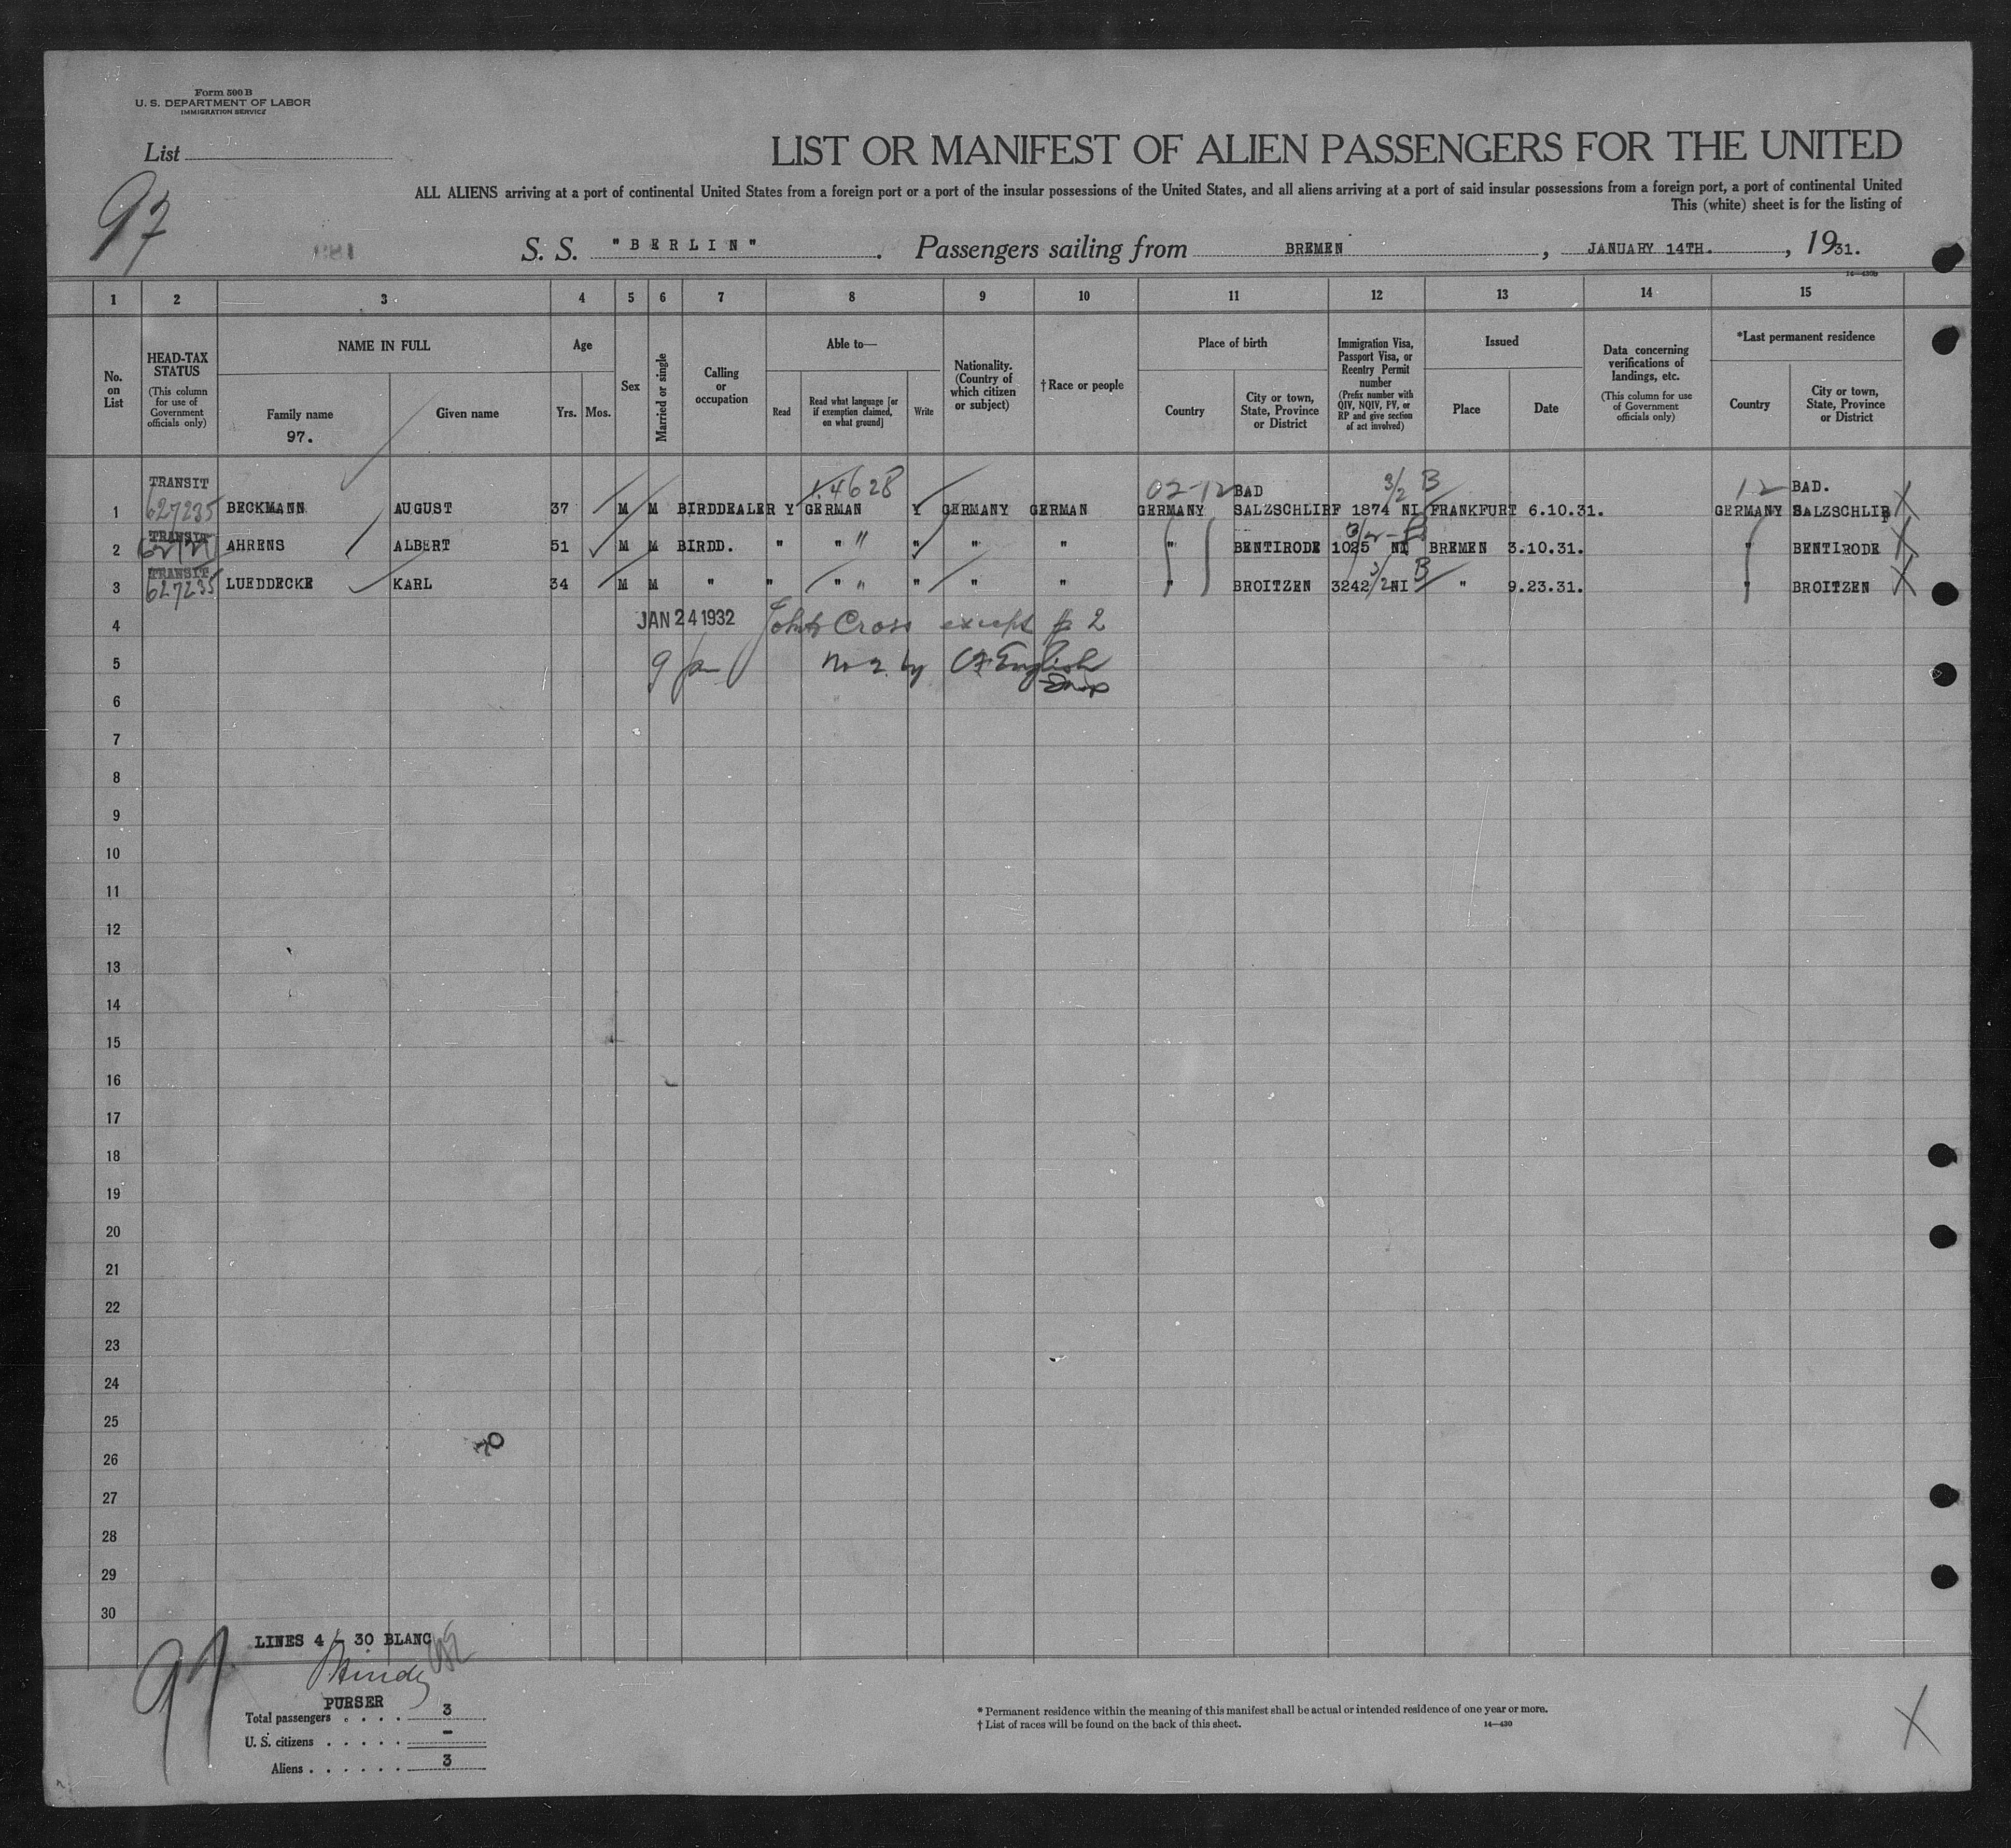 Form 500 B
U. S. DEPARTMENT OF LABOR
IMMIGRATION SERVICE
List
97
LIST OR MANIFEST OF ALIEN PASSENGERS FOR THE UNITED
ALL ALIENS arriving at a port of continental United States from a foreign port or a port of the insular possessions of the United States, and all aliens arriving at a port of said insular possessions from a foreign port, a port of continental United
This (white) sheet is for the listing of
S. S. "BERLIN". Passengers sailing from BREMEN, JANUARY 14TH., 1931.
14—430b
1 2 3 4 5 6 7 8 9 10 11 12 13 14 15
No. on List
HEAD-TAX STATUS
(This column for use of Government officials only)
NAME IN FULL
Family name
97.
Given name
Age
Yrs. Mos.
Sex
Married or single
Calling or occupation
Able to—
Read
Read what language [or if exemption claimed, on what ground]
Write
Nationality. (Country of which citizen or subject)
†Race or people
Place of birth
Country
City or town, State, Province or District
Immigration Visa, Passport Visa, or Reentry Permit number
(Prefix number with QIV, NQIV, PV, or RP and give section of act involved)
Issued
Place
Date
Data concerning verifications of landings, etc.
(This column for use of Government officials only)
*Last permanent residence
Country
City or town, State, Province or District
TRANSIT 4628 02-12 BAD 3/2 B 12 BAD.
1 627235 BECKMANN AUGUST 37 M M BIRDDEALER Y GERMAN Y GERMANY GERMAN GERMANY SALZSCHLIRF 1874 NI FRANKFURT 6.10.31. GERMANY SALZSCHLIP
TRANSIT
2 AHRENS ALBERT 51 M M BIRDD. " " " " " " " BENTIRODE 1025 NI BREMEN 3.10.31. " BENTIRODE
TRANSIT 3/2 B
3 627235 LUEDDECKE KARL 34 M M " " " " " " " " BROITZEN 3242 NI " 9.23.31. " BROITZEN
4 JAN 24 1932 John Cross except # 2
5 9 pm No 2 by CF English
Insp
6
7
8
9
10
11
12
13
14
15
16
17
18
19
20
21
22
23
24
25
26
27
28
29
30
LINES 4 - 30 BLANC
97
PURSER
Total passengers . . . . 3
U. S. citizens . . . . . –
Aliens . . . . . . 3
* Permanent residence within the meaning of this manifest shall be actual or intended residence of one year or more.
† List of races will be found on the back of this sheet. 14—430